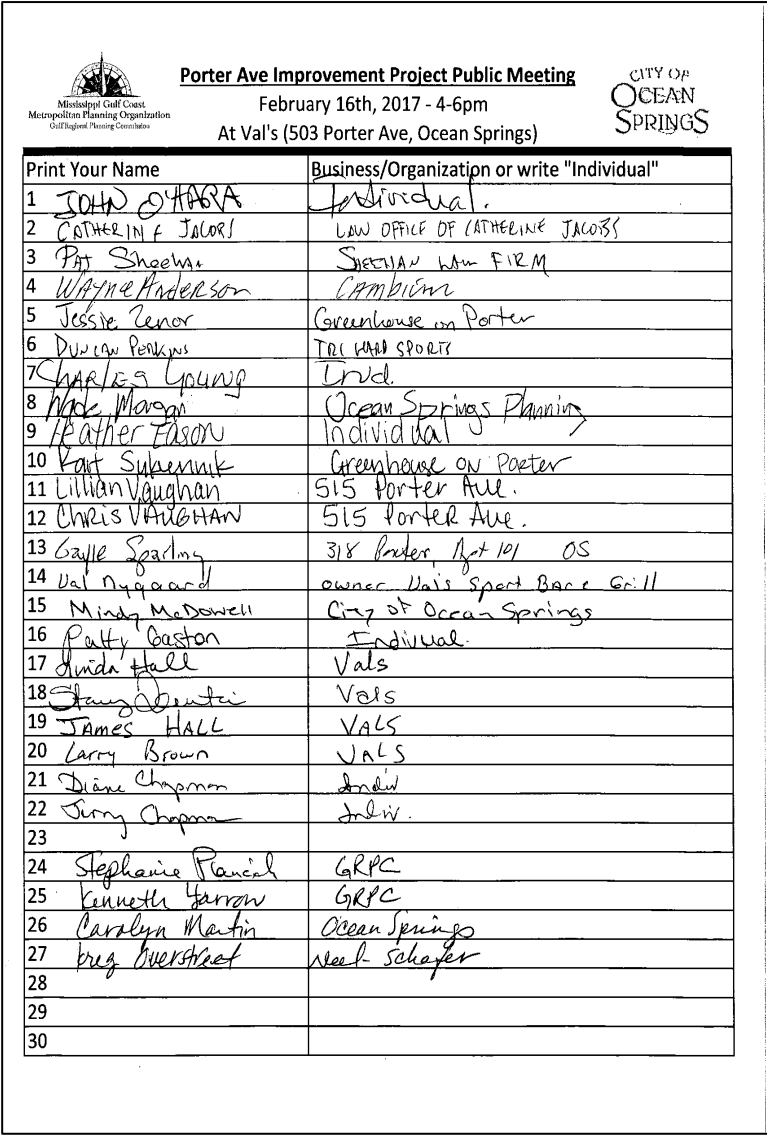 Mississippi Gulf Coast
Metropolitan Planning Organization
Gulf Regional Planning Commission
Porter Ave Improvement Project Public Meeting
February 16th, 2017 - 4-6pm
At Val's (503 Porter Ave, Ocean Springs)
CITY OF
OCEAN
SPRINGS
Print Your Name Business/Organization or write "Individual"
1 JOHN O'HARA Individual.
2 CATHERINE JACOBS LAW OFFICE OF CATHERINE JACOBS
3 PAT Sheehan SHEEHAN LAW FIRM
4 WAYNE ANDERSON CAMBIUM
5 Jessie Zenor Greenhouse on Porter
6 DUNCAN PERKINS TRI HARD SPORTS
7 CHARLES YOUNG Ind.
8 Wade Morgan Ocean Springs Planning
9 Heather EASON Individual
10 Kait Sukennik Greenhouse ON PORTER
11 Lillian Vaughan 515 Porter Ave.
12 CHRIS VAUGHAN 515 PORTER Ave.
13 Gayle Sparling 318 Porter, Apt 101 OS
14 Val Nygaard owner Val's Sport Bar & Grill
15 Mindy McDowell City of Ocean Springs
16 Patty Gaston Indivual.
17 Hall Vals
18 Vals
19 JAMES HALL VALS
20 Larry Brown VALS
21 Diane Chapman Indiv
22 Jerry Chapman Indiv.
23
24 Stephanie GRPC
25 Kenneth Yarrow GRPC
26 Carolyn Martin Ocean Springs
27 Greg Overstreet Neel-Schafer
28
29
30